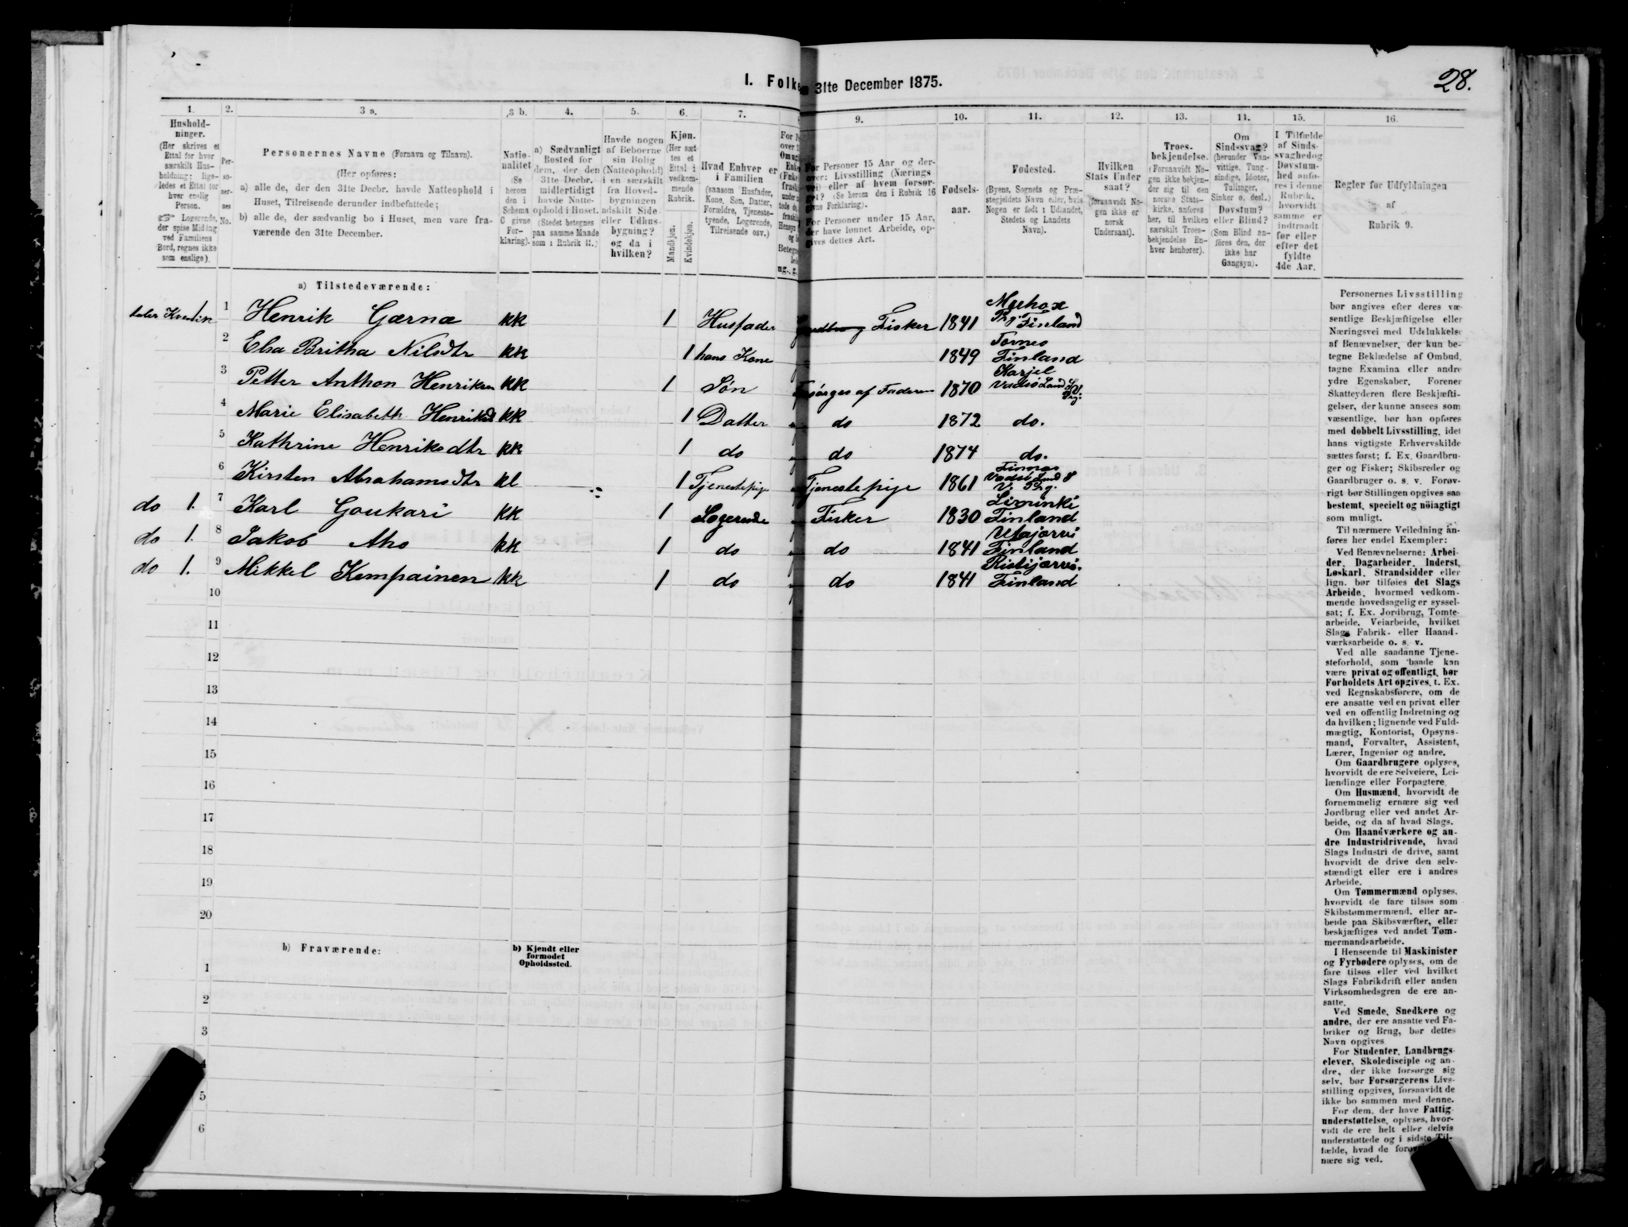 I. Folke
31te December 1875.
28.
1.
2.
3 a.
3 b.
4.
5.
6.
7.
9.
10.
11.
12.
13.
14.
15.
16.
Hushold-
ninger.
(Her skrives et
Ettal for hver
særskilt Hus-
holdning; lige-
ledes et Ettal for
hver enslig
Person.
☞ Logerende,
der spise Middag
ved Familiens
Bord, regnes ikke
som enslige).
Per-
so-
ner-
nes
No.
Personernes Navne (Fornavn og Tilnavn).
(Her opføres:
a) alle de, der den 31te Decbr. havde Natteophold i
Huset, Tilreisende derunder indbefattede;
b) alle de, der sædvanlig bo i Huset, men vare fra-
værende den 31te December.
Natio-
nalitet
(Se
herom
den i
Schema
C givne
For-
klaring).
a) Sædvanligt
Bosted for
dem, der den
31te Decbr.
midlertidigt
havde Natte-
ophold i Huset.
(Stedet betegnes
paa samme Maade
som i Rubrik 11.)
Havde nogen
af Beboerne
sin Bolig
(Natteophold)
i en særskilt
fra Hoved-
bygningen
adskilt Side-
eller Udhus-
bygning?
og da i
hvilken?
Kjøn.
(Her sæt-
tes et
Ettal i
vedkom-
mende
Rubrik.
Mandkjøn.
Kvindekjøn.
Hvad Enhver er
i Familien
(saasom Husfader,
Kone, Søn, Datter,
Forældre, Tjeneste-
tyende, Logerende,
Tilreisende osv.)
For Personer 15 Aar og der-
over: Livsstilling (Nærings-
vei) eller af hvem forsør-
get? (Se herom den i Rubrik 16
givne Forklaring).
For Personer under 15 Aar,
der have lønnet Arbeide, op-
gives dettes Art.
Fødsels-
aar.
Fødested.
(Byens, Sognets og Præ-
stegjeldets Navn eller, hvis
Nogen er født i Udlandet,
Stedets og Landets
Navn).
Hvilken
Stats Under-
saat?
(forsaavidt No-
gen ikke er
norsk
Undersaat).
Troes-
bekjendelse.
(Forsaavidt No-
gen ikke bekjen-
der sig til den
norske Stats-
kirke, anføres
her, til hvilken
særskilt Troes-
bekjendelse En-
hver henhører).
Om
Sindssvag?
(herunder Van-
vittige, Tung-
sindige, Idioter,
Tullinger,
Sinker o. desl.)
Døvstum?
eller Blind?
(Som Blind an-
føres den, der
ikke har
Gangsyn).
I Tilfælde
af Sinds-
svaghed og
Døvstum-
hed anfø-
res i denne
Rubrik,
hvorvidt
samme er
indtraadt
før eller
efter det
fyldte
4de Aar.
Regler for Udfyldningen
af
Rubrik 9.
a) Tilstedeværende:
1 Henrik Gærna kk 1 Husfader Fisker 1841 Finland
2 Elsa Britha Nilsdtr kk 1 hans Kone 1849 Finland
3 Petter Anthon Henriksen kk 1 Søn Forsørges af Faderen 1870
4 Marie Elisabeth Henriksdtr kk 1 Datter do 1872 do.
5 Kathrine Henriksdtr kk 1 do do 1874 do.
6 Kirsten Abrahamsdtr kl 1 Tjenestepige Tjenestepige 1861
do 1. 7 Karl Goukari kk 1 Logerende Fisker 1830 Liminki Finland
do 1. 8 Jakob Aho kk 1 do do 1841 Finland
do 1. 9 Mikkel Kempainen kk 1 do do 1841 Ristijærvi. Finland
10
11
12
13
14
15
16
17
18
19
20
b) Fraværende:
b) Kjendt eller
formodet
Opholdssted.
1
2
3
5
6
Personernes Livsstilling
bør angives efter deres væ-
sentlige Beskjæftigelse eller
Næringsvei med Udelukkelse
af Benævnelser, der kun be-
tegne Beklædelse af Ombud,
tagne Examina eller andre
ydre Egenskaber. Forener
Skatteyderen flere Beskjæfti-
gelser, der kunne ansees som
væsentlige, bør han opføres
med dobbelt Livsstilling, idet
hans vigtigste Erhvervskilde
sættes først; f. Ex. Gaardbru-
ger og Fisker; Skibsreder og
Gaardbruger o. s. v. Forøv-
rigt bør Stillingen opgives saa
bestemt, specielt og nøiagtigt
som muligt.
Til nærmere Veiledning an-
føres her endel Exempler:
Ved Benævnelserne: Arbei-
der, Dagarbeider, Inderst,
Løskarl, Strandsidder eller
lign. bør tilføies det Slags
Arbeide, hvormed vedkom-
mende hovedsagelig er syssel-
sat; f. Ex. Jordbrug, Tomte-
arbeide, Veiarbeide, hvilket
Slags Fabrik- eller Haand-
værksarbeide o. s. v.
Ved alle saadanne Tjene-
steforhold, som baade kan
være privat og offentligt, bør
Forholdets Art opgives, t. Ex.
ved Regnskabsførere, om de
ere ansatte ved en privat eller
ved en offentlig Indretning og
da hvilken; lignende ved Fuld-
mægtig, Kontorist, Opsyns-
mand, Forvalter, Assistent,
Lærer, Ingeniør og andre.
Om Gaardbrugere oplyses,
hvorvidt de ere Selveiere, Lei-
lændinge eller Forpagtere.
Om Husmænd, hvorvidt de
fornemmelig ernære sig ved
Jordbrug eller ved andet Ar-
beide, og da af hvad Slags.
Om Haandværkere og an-
dre Industridrivende, hvad
Slags Industri de drive, samt
hvorvidt de drive den selv-
stændigt eller ere i andres
Arbeide.
Om Tømmermænd oplyses,
hvorvidt de fare tilsøs som
Skibstømmermænd, eller ar-
beide paa Skibsværfter, eller
beskjæftiges ved andet Tøm-
mermandsarbeide.
I Henseende til Maskinister
og Fyrbødere oplyses, om de
fare tilsøs eller ved hvilket
Slags Fabrikdrift eller anden
Virksomhedsgren de ere an-
satte.
Ved Smede, Snedkere og
andre, der ere ansatte ved Fa-
briker og Brug, bør dettes
Navn opgives
For Studenter, Landbrugs-
elever, Skoledisciple og an-
dre, der ikke forsørge sig
selv, bør Forsørgerens Livs-
stilling opgives, forsaavidt de
ikke bo sammen med denne.
For dem, der have Fattig-
understøttelse, oplyses, hvor-
vidt de ere helt eller delvis
understøttede og i sidste Til-
fælde, hvad de
nære sig ved.